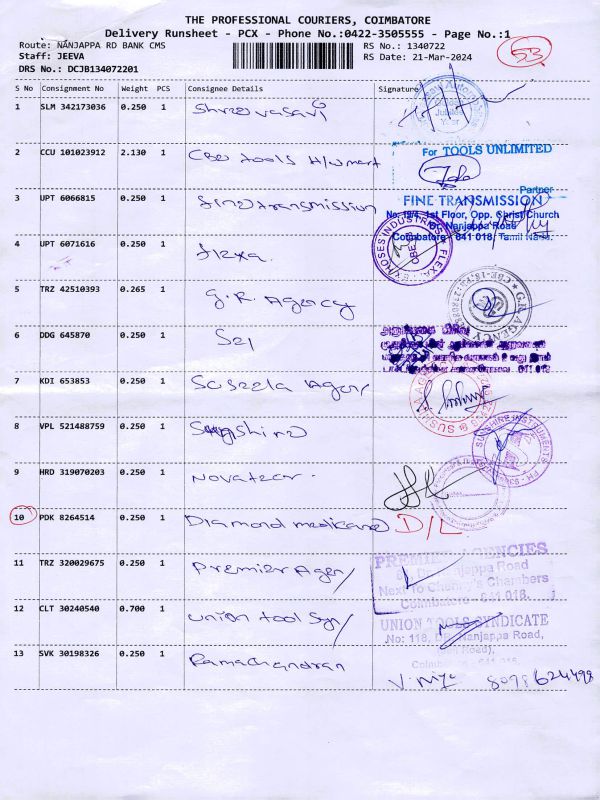 THE PROFESSIONAL COURIERS, COIMBATORE
Delivery Runsheet - PCX - Phone No.:0422-3505555 - Page No.:1
Route: NANJAPPA RD BANK CMS RS No.: 1340722 53
Staff: JEEVA RS Date: 21-Mar-2024
DRS No.: DCJB134072201
S No Consignment No Weight PCS Consignee Details Signature
1 SLM 342173036 0.250 1 Shree vasavi
2 CCU 101023912 2.130 1 CBE tools H/w mart
For TOOLS UNLIMITED
Partner
3 UPT 6066815 0.250 1 fine transmission
FINE TRANSMISSION
No. 19/4, 1st Floor, Opp. Christ Church
Dr. Nanjappa Road
Coimbatore - 641 018, Tamil Nadu.
4 UPT 6071616 0.250 1 flexa.
5 TRZ 42510393 0.265 1 G.K. Agency
G.K. AGENCY
6 DDG 645870 0.250 1 SEI
7 KDI 653853 0.250 1 Suseela Agency
8 VPL 521488759 0.250 1 Sunshine
SUNSHINE INSTRUMENTS
9 HRD 319070203 0.250 1 Novateer.
10 PDK 8264514 0.250 1 Diamond medicare D/L
11 TRZ 320029675 0.250 1 Premier Agency
PREMIER AGENCIES
Dr. Nanjappa Road
Next to Cherry's Chambers
Coimbatore - 641 018.
12 CLT 30240540 0.700 1 union tool Syn/
UNION TOOLS SYNDICATE
No: 118, Dr. Nanjappa Road,
Coimbatore - 641 018.
13 SVK 30198326 0.250 1 Ramachandran
8098624498